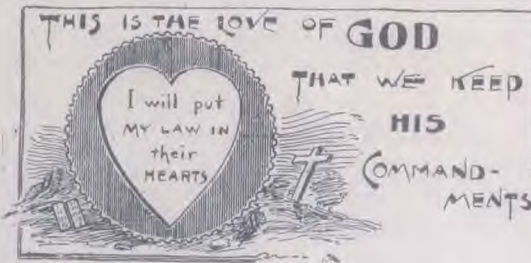 THIS IS THE LOVE OF GOD
THAT WE KEEP
HIS
COMMAND-
MENTS
I will put
MY LAW IN
their
HEARTS